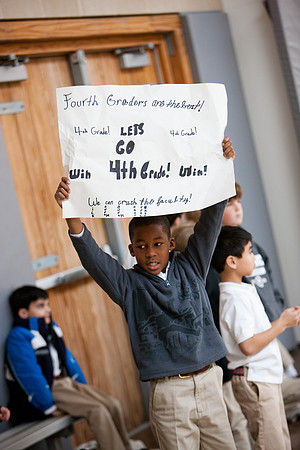 Fourth Graders are the best!
4th Grade! LETS 4th Grade!
GO
Win 4th Grade! Win!
We can crush this faculty!